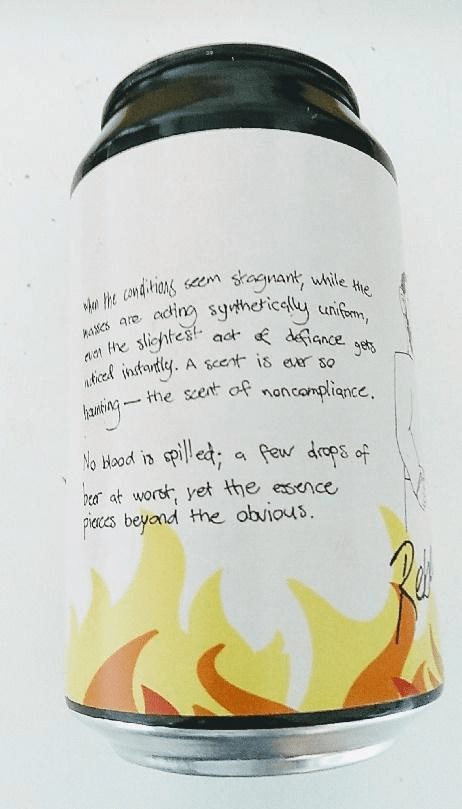 when the conditions seem stagnant, while the
masses are acting synthetically uniform,
even the slightest act of defiance gets
noticed instantly. A scent is ever so
haunting — the scent of noncompliance.
No blood is spilled; a few drops of
beer at worst, yet the essence
pierces beyond the obvious.